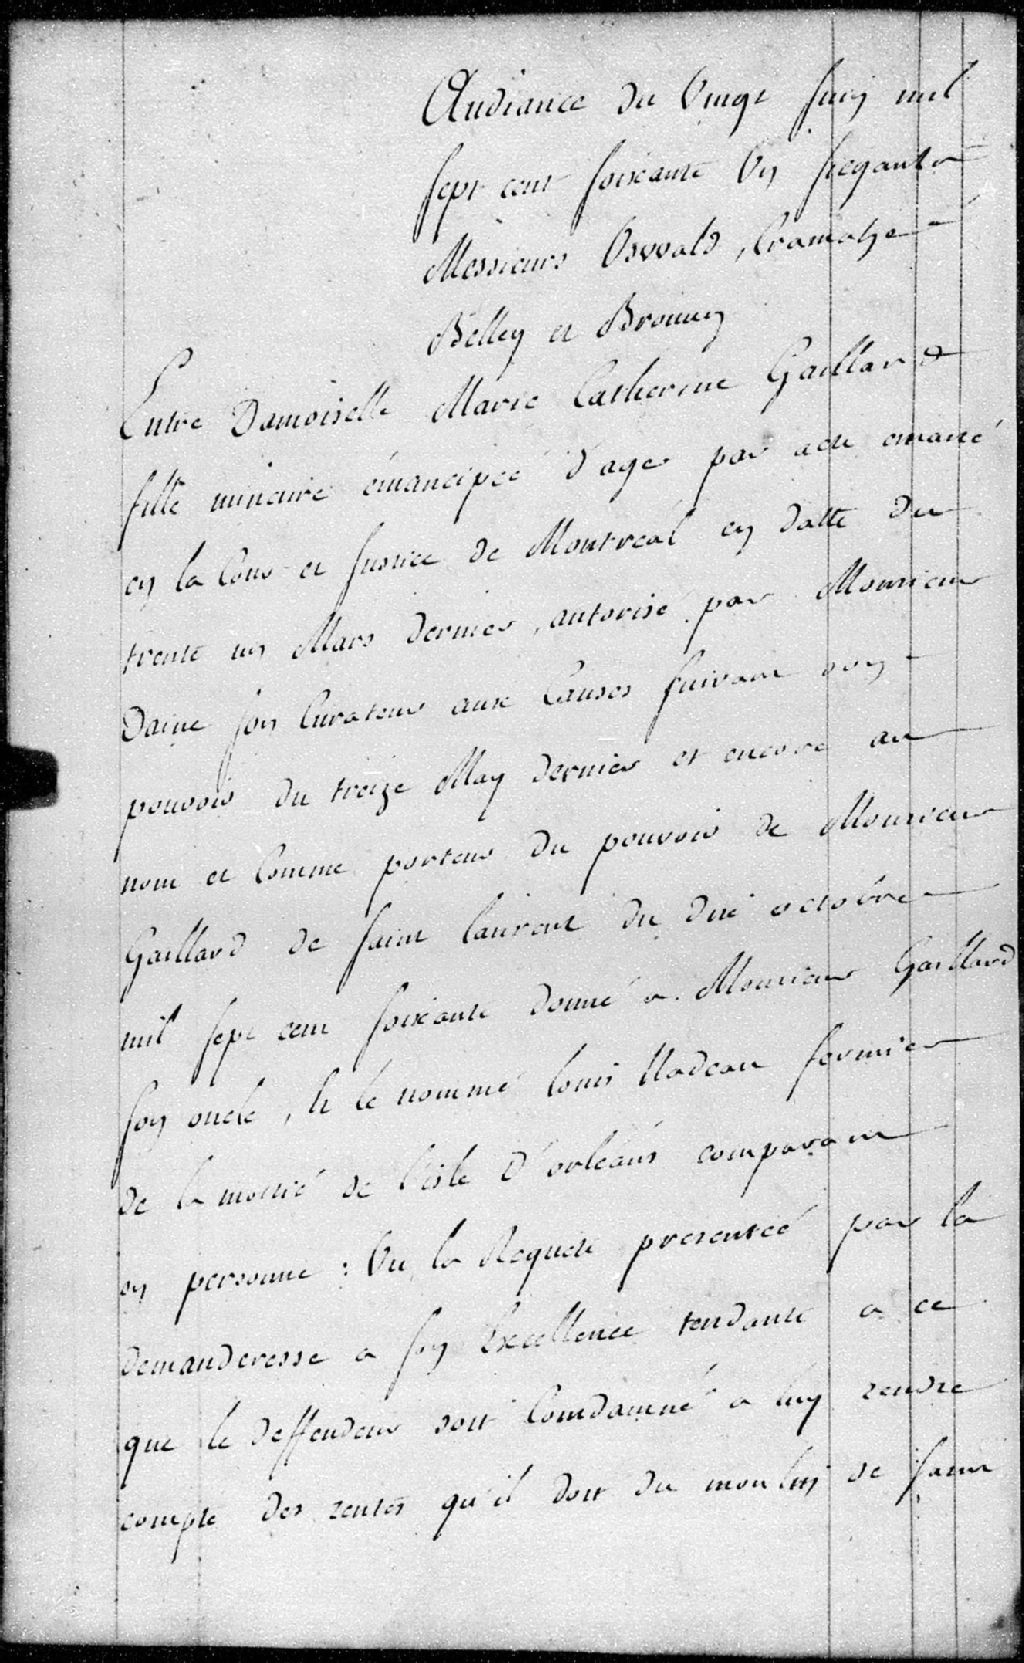 Audiance du Vingt juin mil
sept cent soixante Un seeante
Messieurs Osvvald, Cramahe
Belley et Brouney
Entre Damoiselle Marie Catherine Gaillard
fille mineure émancipeé d'age par acte emané
en la Cour et Justice de Montreal en datte du
trente un Mars dernier, autorisé par Monsieur
Daine son Curateur aux Causes suivant son
pouvoir du treize May dernier et encore au
nom et Comme porteur du pouvoir de Monsieur
Gaillard de Saint laurent du dix octobre
mil sept cent soixante donné a Monsieur Gaillard
son oncle, Et le nommé louis Nadeau fermier
de la moitié de l'isle d'orléans comparant
en personne : Vu la Requete presenteé par la
demanderesse a son Excellence tendante a ce
que le deffendeur soit Comdamné a luy rendre
compte des rentes qu'il doit du moulin de saint